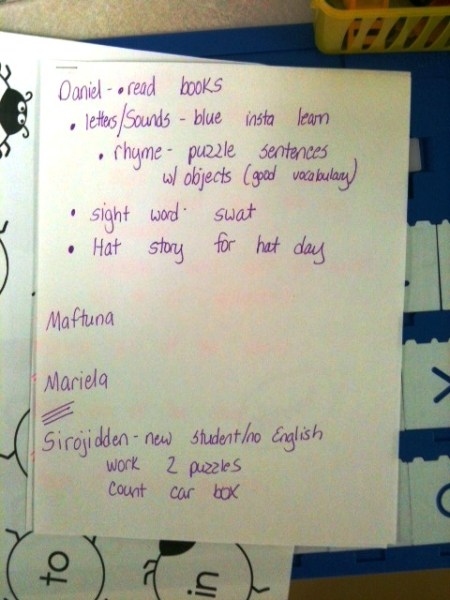 Daniel - • read books
• letters/Sounds - blue insta learn
• rhyme - puzzle sentences
w/ objects (good vocabulary)
• sight word - swat
• Hat story for hat day
Maftuna
Mariela
Sirojidden - new student/no English
work 2 puzzles
count car box
to
in